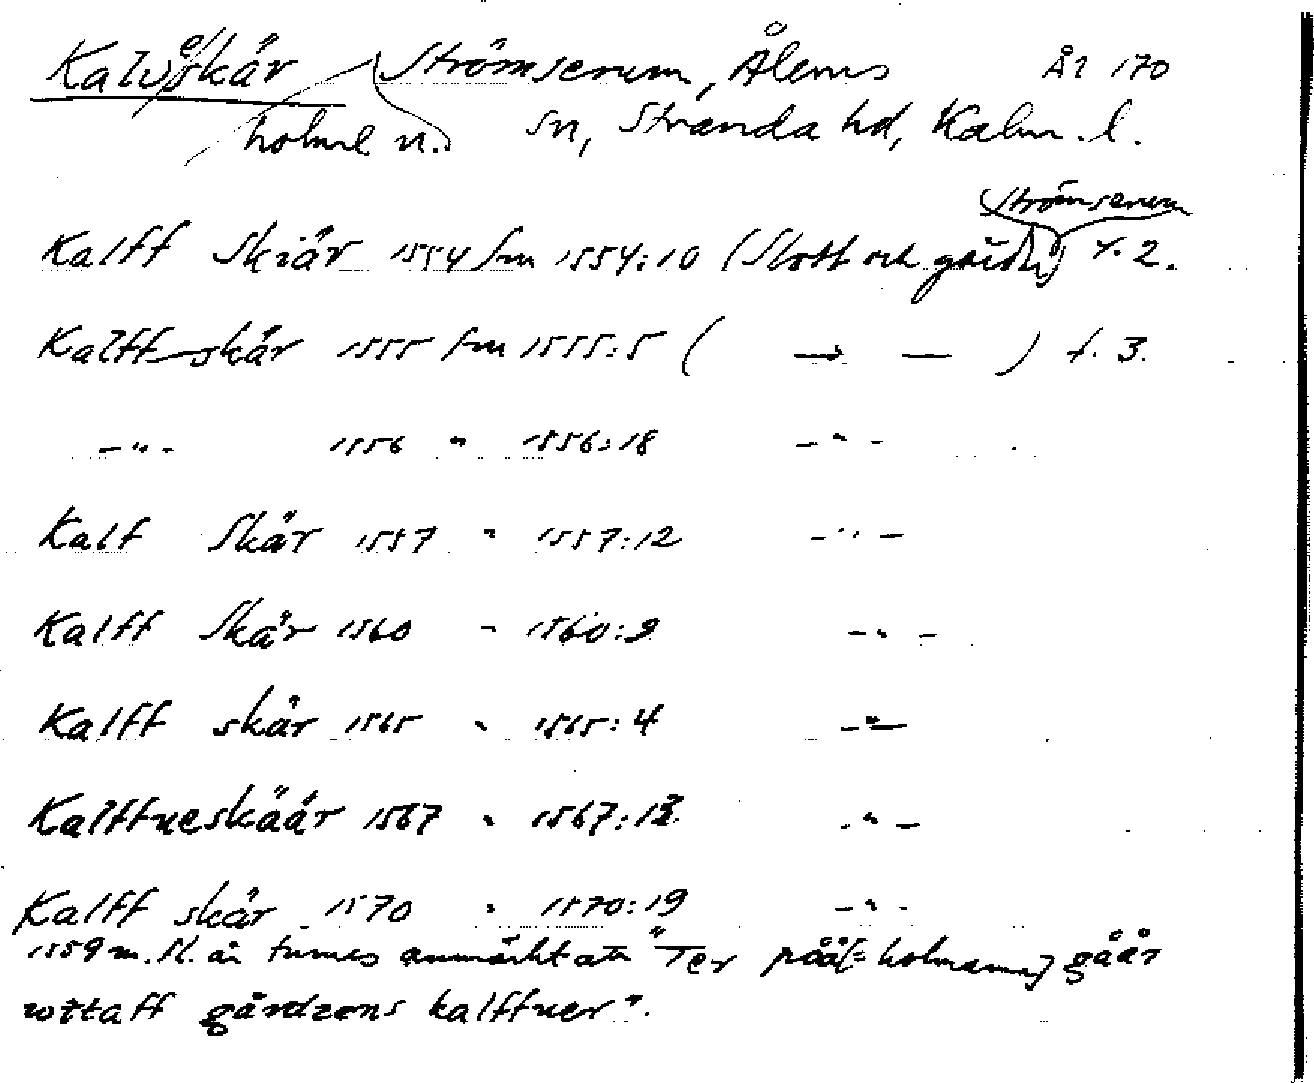 Kalveskär Strömserum, Ålems Ål 170
holme n. sn, Stranda hd, Kalm. l.
Strömserum
Kalff Skiär 1554 fm 1554:10 (Slott och gårdh) f. 2.
Kalff skär 1555 fm 1555:5 ( — — ) f. 3.
—"— 1556 " 1556:18 —"—
Kalf Skär 1557 " 1557:12 —"—
Kalff Skär 1560 " 1560:9 —"—
Kalff skär 1565 " 1565:4 —"—
Kalffueskäär 1567 " 1567:13 —"—
Kalff skär 1570 " 1570:19 —"—
1559 m. fl. år finnes anmärkt att "Ter påå [= holmarna] gåår
wttaff gårdzens kalffuer".